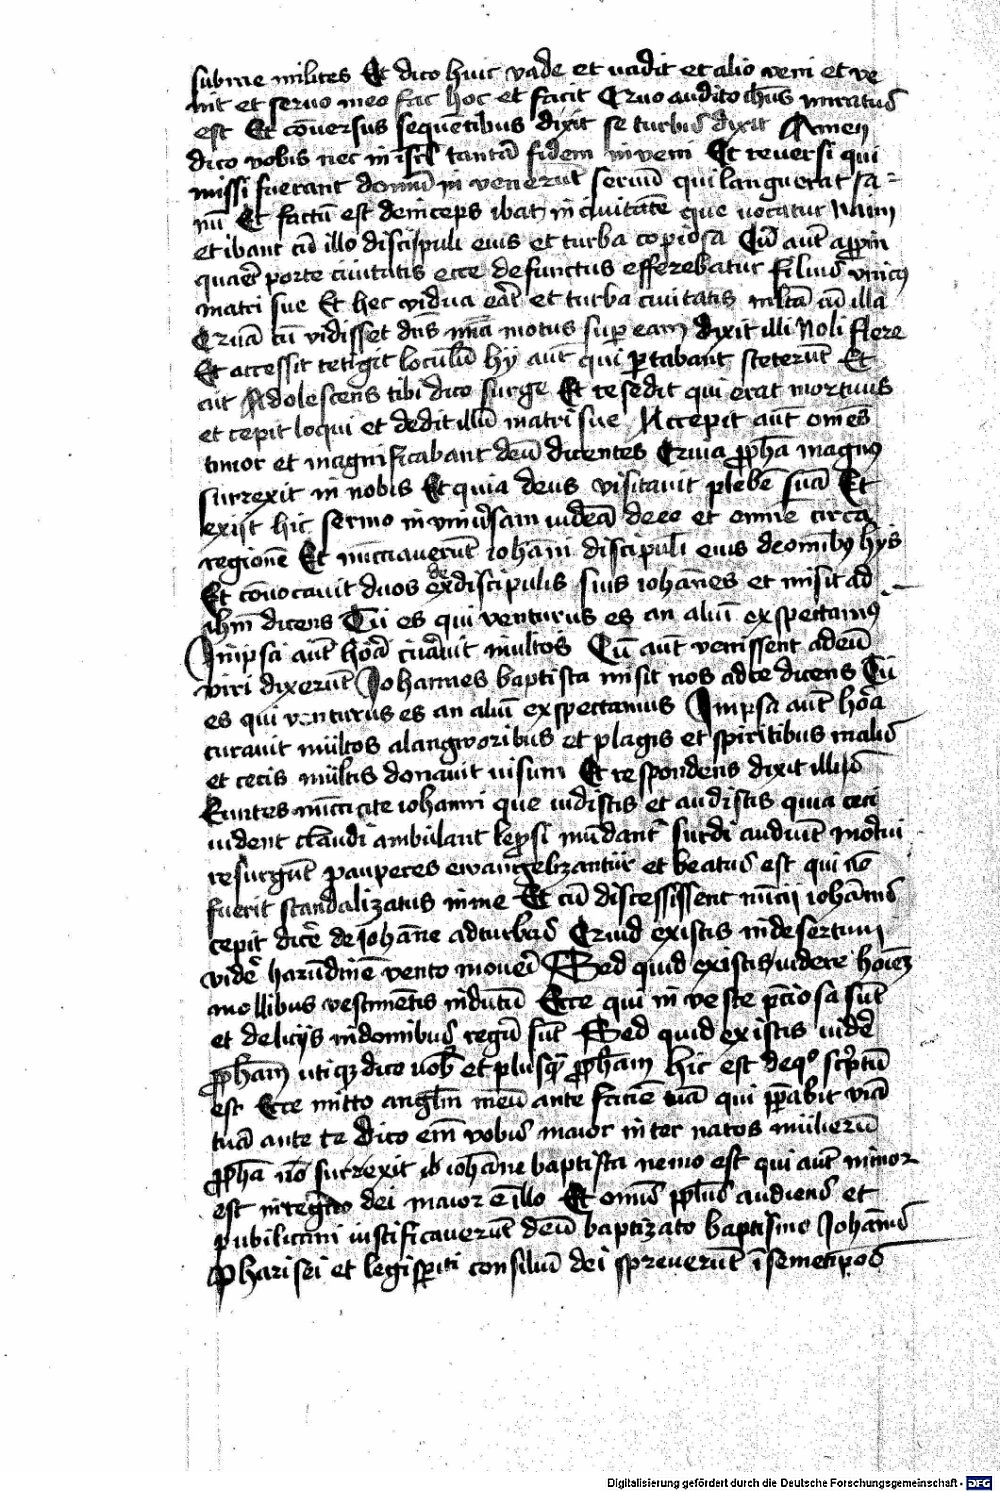 sub me milites Et dico huic vade et uadit et alio veni et ve
nit et seruo meo fac hoc et facit Quo audito ihus miratus
est Et cōuersus sequētibus dixit se turbis dixit Amen
dico vobis nec in isrl tantā fidem inveni Et reuersi qui
missi fuerant domū in venerūt seruū qui languerat sa=
nū Et factū est deinceps ibat in ciuitatē que uocatur Naim
et ibant cū illo discipuli eius et turba copiosa Cū aūt appin
quarēt porte ciuitatis ecce defunctus efferebatur filius vnicus
matri sue Et hec vidua erat et turba ciuitatis mltā cū illa
Quā cū vidisset dns mīa motus super eam dixit illi Noli flere
Et accessit tetigit loculū hy aūt qui portabant steterūt Et
ait Adolescens tibi dico surge Et resedit qui erat mortuus
et cepit loqui et dedit illū matri sue Accepit aūt omēs
timor et magnificabant deū dicentes Quia ppha magnus
surrexit in nobis Et quia deus visitauit plebē suā Et
exijt hic sermo in vniuersam iudeā de eo et omnē circa
regionē Et nūcciauerūt iohāni discipuli eius de omībus hys
Et cōuocauit duos de ex discipulis suis iohānes et misit ad
ihm dicens Tu es qui venturus es an aliū expectamus
In ipsa aūt hora curauit multos Cū aūt venissent ad eū
viri dixerūt Johannes baptista misit nos ad te dicens Tu
es qui venturus es an aliū exspectamus In ipsa aūt hora
curauit multos a langworibus et plagis et spiritibus malis
et cecis multis donauit uisum Et respondens dixit illis
Euntes nūcciate iohanni que uidistis et audistis quia ceci
uident claudi ambulant leprosi mūdant surdi audiūt mortui
resurgūt pauperes ewangelizantur et beatus est qui nō
fuerit scandalizatus in me Et cū discessissent nūcij iohānis
cepit dicere de iohāne ad turbas Quid existis in desertum
videre harūdinē vento moueri Sed quid existis uidere hoīez
mollibus vestimētis indutū Ecce qui in veste pciosa sūt
et delicijs in domibus regū sūt Sed quid existis uidere
pphām utiqz dico uob et plusq pphām hic est de quo scptū
est Ecce mitto anglm meū ante faciē tuā qui pparabit viā
tuā ante te Dico em vobis maior inter natos mulierū
ppha nō surrexit ib iohāne baptista nemo est qui aūt minor
est in regno dei maior ē illo Et omīs pplus audiens et
publicani iustificauerūt deū baptizato baptismo Johānis
Pharisei et legisperiti consiliū dei spreuerūt ī semetipos
Digitalisierung gefördert durch die Deutsche Forschungsgemeinschaft - DFG